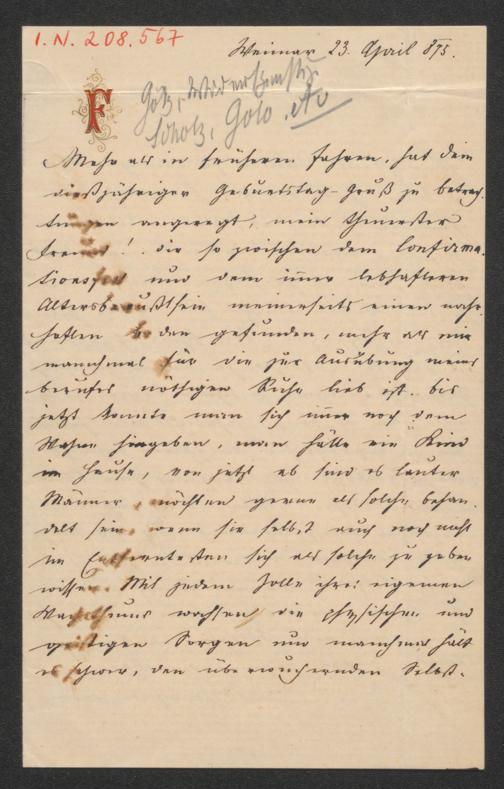 I. N. 208.567
Weimar 23. April 875.
F
Götz, Widerspenstige
Scholz, Golo. etc
Mehr als in früheren Jahren, hat dein
dießjähriger Geburtstag-Gruß zu betrach-
tungen angeregt, mein theuerster
Freund! die so zwischen dem Confirma-
tionsfest und dem immer lebhafteren
Altersbewußtsein meinerseits einen nahr-
haften Boden gefunden, mehr als mir
manchmal für die zur Ausübung meines
berufes nöthigen Ruhe lieb ist. bis
jetzt konnte man sich immer noch dem
Wahne hingeben, man hätte ein Kind
im Hause, von jetzt ab sind es lauter
Männer, möchten gerne als solche behan-
delt sein, wenn sie selbst auch noch nicht
im Entferntesten sich als solche zu geben
wissen. Mit jedem Zolle ihres eigenen
Wachsthums wachsen die physischen und
geistigen Sorgen und manchmal hält
es schwer, den überwuchernden Selbst-